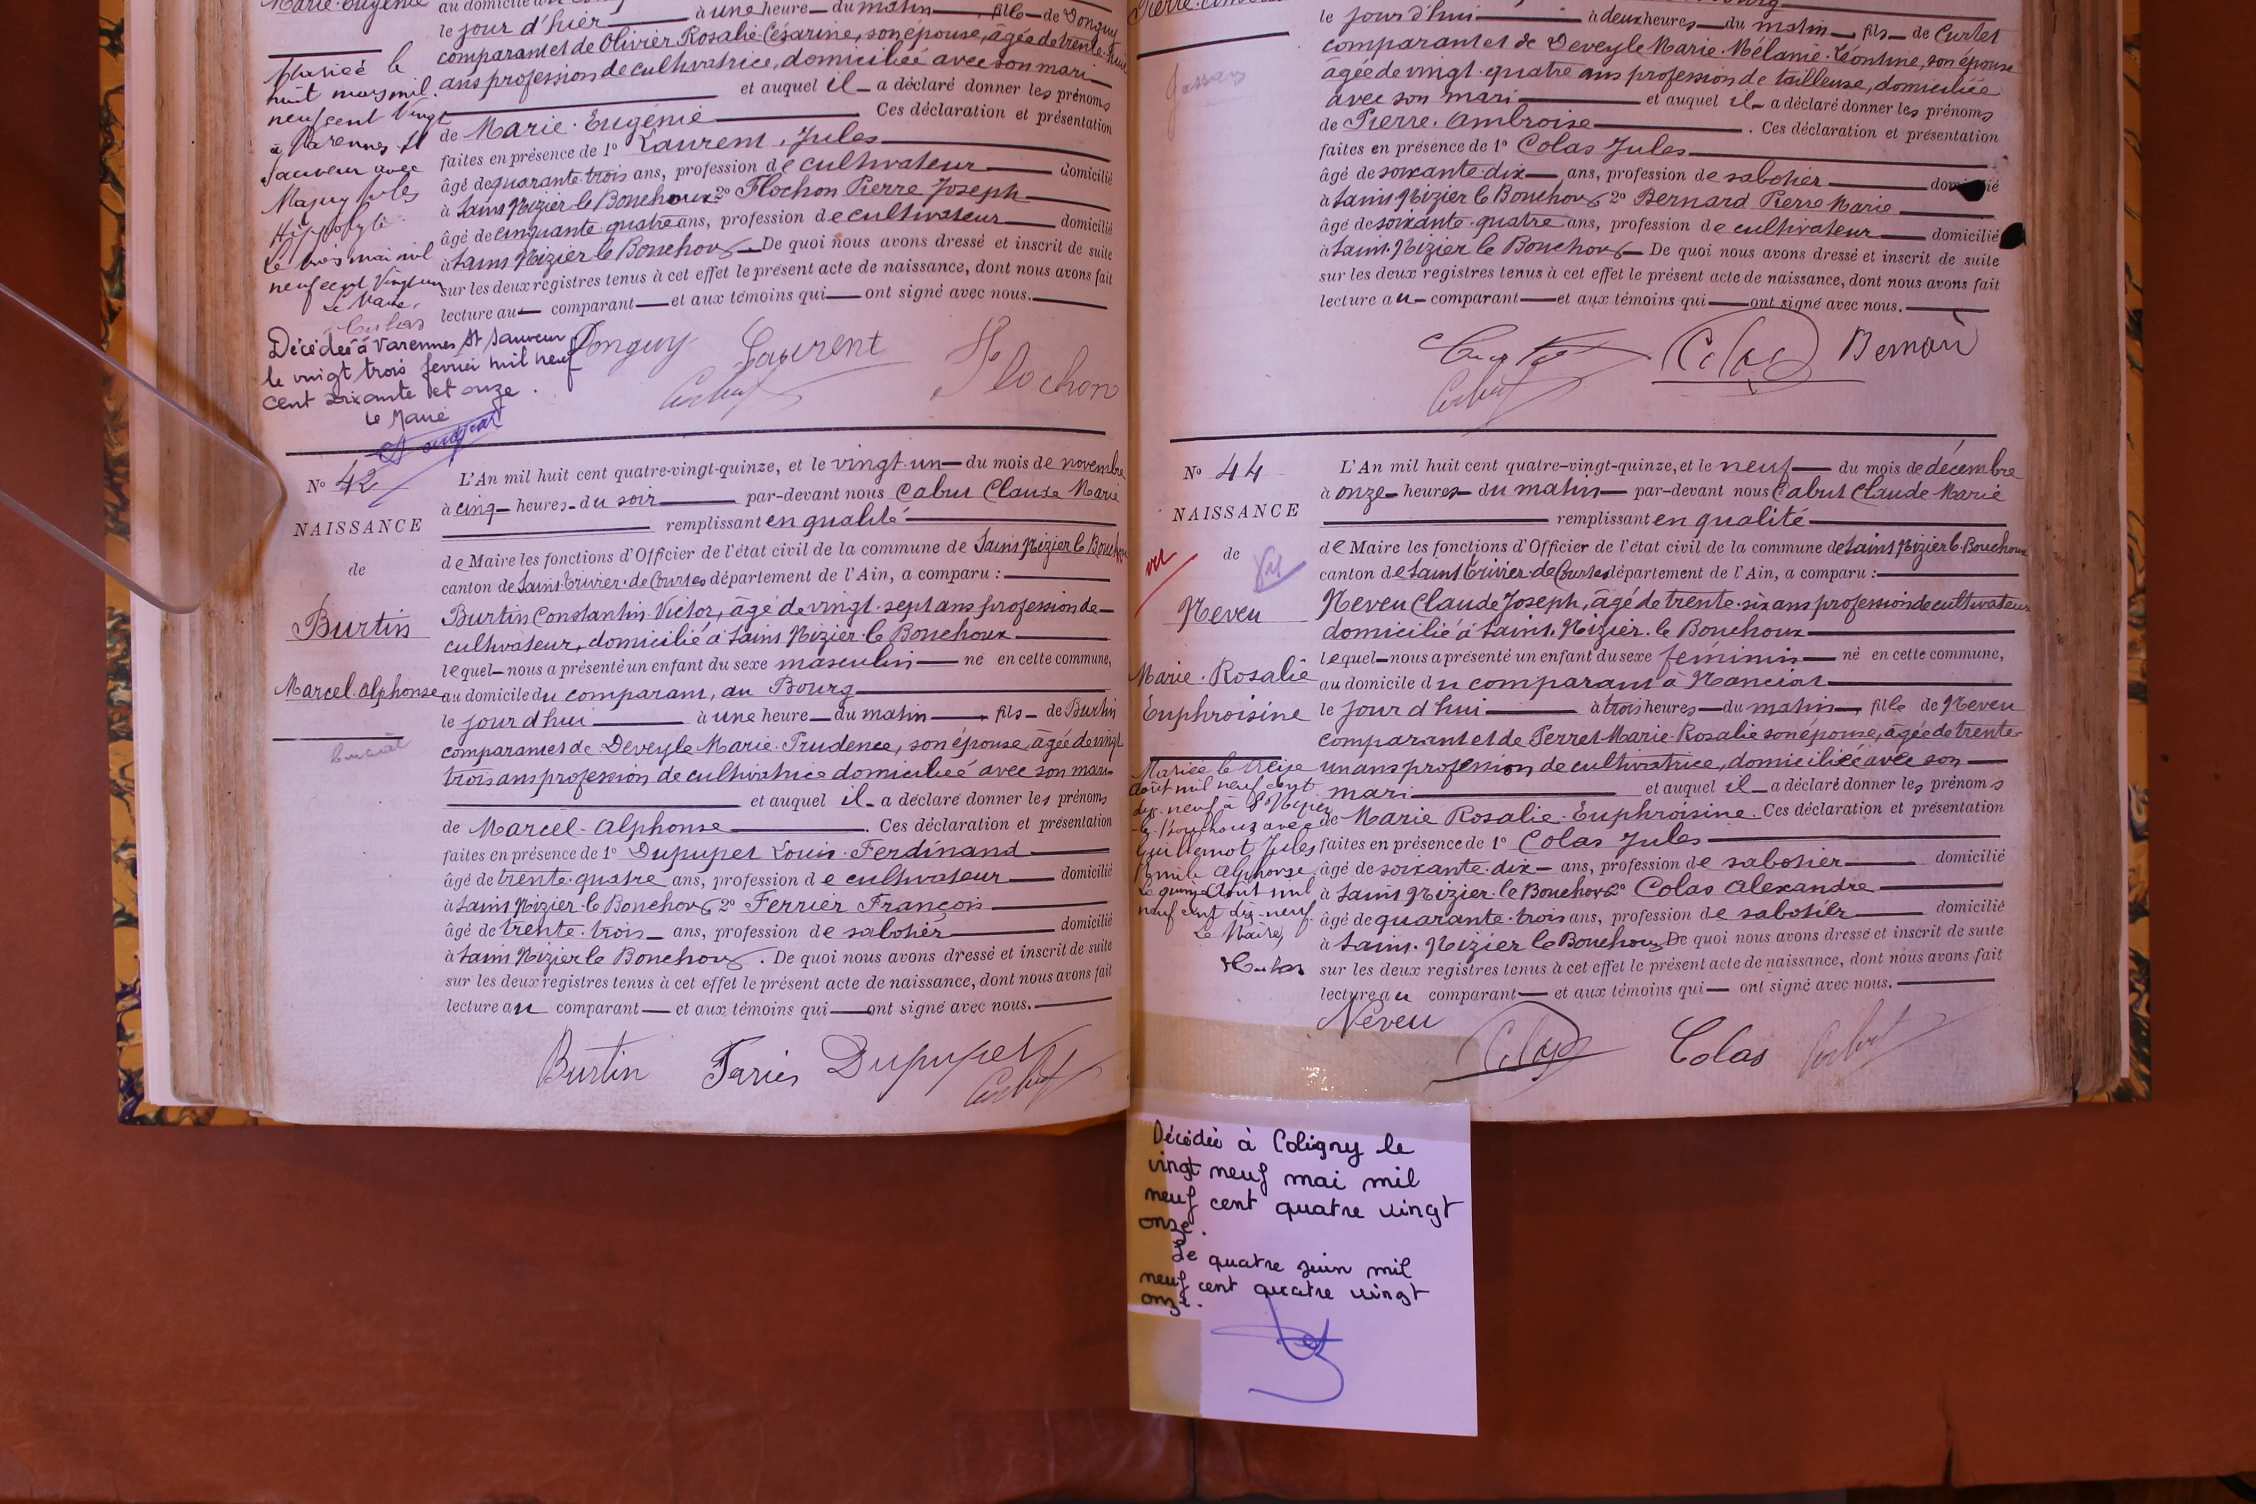 Marie. Eugénie
le jour d'hier à une heure du matin, fille de Donguy
comparant et de Olivier Rosalie Césarine, son épouse, âgée de trente-huit
ans profession de cultivatrice, domiciliée avec son mari
et auquel il a déclaré donner les prénoms
de Marie. Eugénie Ces déclaration et présentation
faites en présence de 1° Laurent, Jules
âgé de quarante trois ans, profession de cultivateur domicilié
à Saint Nizier le Bouchoux 2° Flochon Pierre Joseph
âgé de cinquante quatre ans, profession de cultivateur domicilié
à Saint Nizier le Bouchoux De quoi nous avons dressé et inscrit de suite
sur les deux registres tenus à cet effet le présent acte de naissance, dont nous avons fait
lecture au comparant et aux témoins qui ont signé avec nous.
Mariée le
huit mars mil
neuf cent vingt
à Varennes St
Sauveur avec
Jules
Hippolyte
Le mai mil
neuf cent vingt un
Le Maire,
Décédée à Varennes St Sauveur
le vingt trois février mil neuf
cent soixante et onze.
Le Maire
Donguy Laurent Flochon
N° 42
NAISSANCE
de
Burtin
Marcel. Alphonse
L'An mil huit cent quatre-vingt-quinze, et le vingt-un du mois de novembre
à cinq heures du soir par-devant nous Cabut Claude Marie
remplissant en qualité
de Maire les fonctions d'Officier de l'état civil de la commune de Saint Nizier le Bouchoux
canton de Saint-Trivier-de-Courtes département de l'Ain, a comparu :
Burtin Constantin Victor, âgé de vingt-sept ans profession de
cultivateur, domicilié à Saint Nizier-le Bouchoux
lequel nous a présenté un enfant du sexe masculin né en cette commune,
au domicile du comparant, au Bourg
le jour d'hui à une heure du matin, fils de Burtin
comparant et de Deveyle Marie. Prudence, son épouse, âgée de vingt
trois ans profession de cultivatrice domiciliée avec son mari
et auquel il a déclaré donner les prénoms
de Marcel-Alphonse. Ces déclaration et présentation
faites en présence de 1° Dupupet Louis-Ferdinand
âgé de trente-quatre ans, profession de cultivateur domicilié
à Saint Nizier-le Bouchoux 2° Ferrier François
âgé de trente-trois ans, profession de sabotier domicilié
à Saint Nizier le Bouchoux. De quoi nous avons dressé et inscrit de suite
sur les deux registres tenus à cet effet le présent acte de naissance, dont nous avons fait
lecture au comparant et aux témoins qui ont signé avec nous.
Burtin Dupupet
le jour d'hui à deux heures du matin, fils de Curtet
comparant et de Deveyle Marie-Mélanie-Léontine, son épouse
âgée de vingt-quatre ans profession de tailleuse, domiciliée
avec son mari et auquel il a déclaré donner les prénoms
de Pierre. Ambroise. Ces déclaration et présentation
faites en présence de 1° Colas Jules
âgé de soixante-dix ans, profession de sabotier domicilié
à Saint Nizier le Bouchoux 2° Bernard Pierre Marie
âgé de soixante-quatre ans, profession de cultivateur domicilié
à Saint-Nizier le Bouchoux De quoi nous avons dressé et inscrit de suite
sur les deux registres tenus à cet effet le présent acte de naissance, dont nous avons fait
lecture au comparant et aux témoins qui ont signé avec nous.
Colas Bernard
N° 44
NAISSANCE
de
vu
Neveu
Marie. Rosalie
Euphroisine
L'An mil huit cent quatre-vingt-quinze, et le neuf du mois de décembre
à onze heures du matin par-devant nous Cabut Claude Marie
remplissant en qualité
de Maire les fonctions d'Officier de l'état civil de la commune de Saint Nizier-le-Bouchoux
canton de Saint Trivier-de-Courtes département de l'Ain, a comparu :
Neveu Claude Joseph, âgé de trente-six ans profession de cultivateur
domicilié à Saint. Nizier. le Bouchoux
lequel nous a présenté un enfant du sexe féminin né en cette commune,
au domicile du comparant à Manciat
le jour d'hui à trois heures du matin, fille de Neveu
comparant et de Perret Marie-Rosalie son épouse, âgée de trente
un ans profession de cultivatrice, domiciliée avec son
mari et auquel il a déclaré donner les prénoms
de Marie Rosalie. Euphroisine. Ces déclaration et présentation
faites en présence de 1° Colas Jules
âgé de soixante-dix ans, profession de sabotier domicilié
à Saint Nizier-le Bouchoux 2° Colas Alexandre
âgé de quarante-trois ans, profession de sabotier domicilié
à Saint. Nizier le Bouchoux De quoi nous avons dressé et inscrit de suite
sur les deux registres tenus à cet effet le présent acte de naissance, dont nous avons fait
lecture au comparant et aux témoins qui ont signé avec nous.
Mariée le treize
août mil neuf cent
dix-neuf à St Nizier
le-Bouchoux avec
Jules
Emile Alphonse,
Le quinze Août mil
neuf cent dix-neuf.
Le Maire,
Neveu Colas Colas
Décédée à Coligny le
vingt neuf mai mil
neuf cent quatre vingt
onze.
Le quatre juin mil
neuf cent quatre vingt
onze.